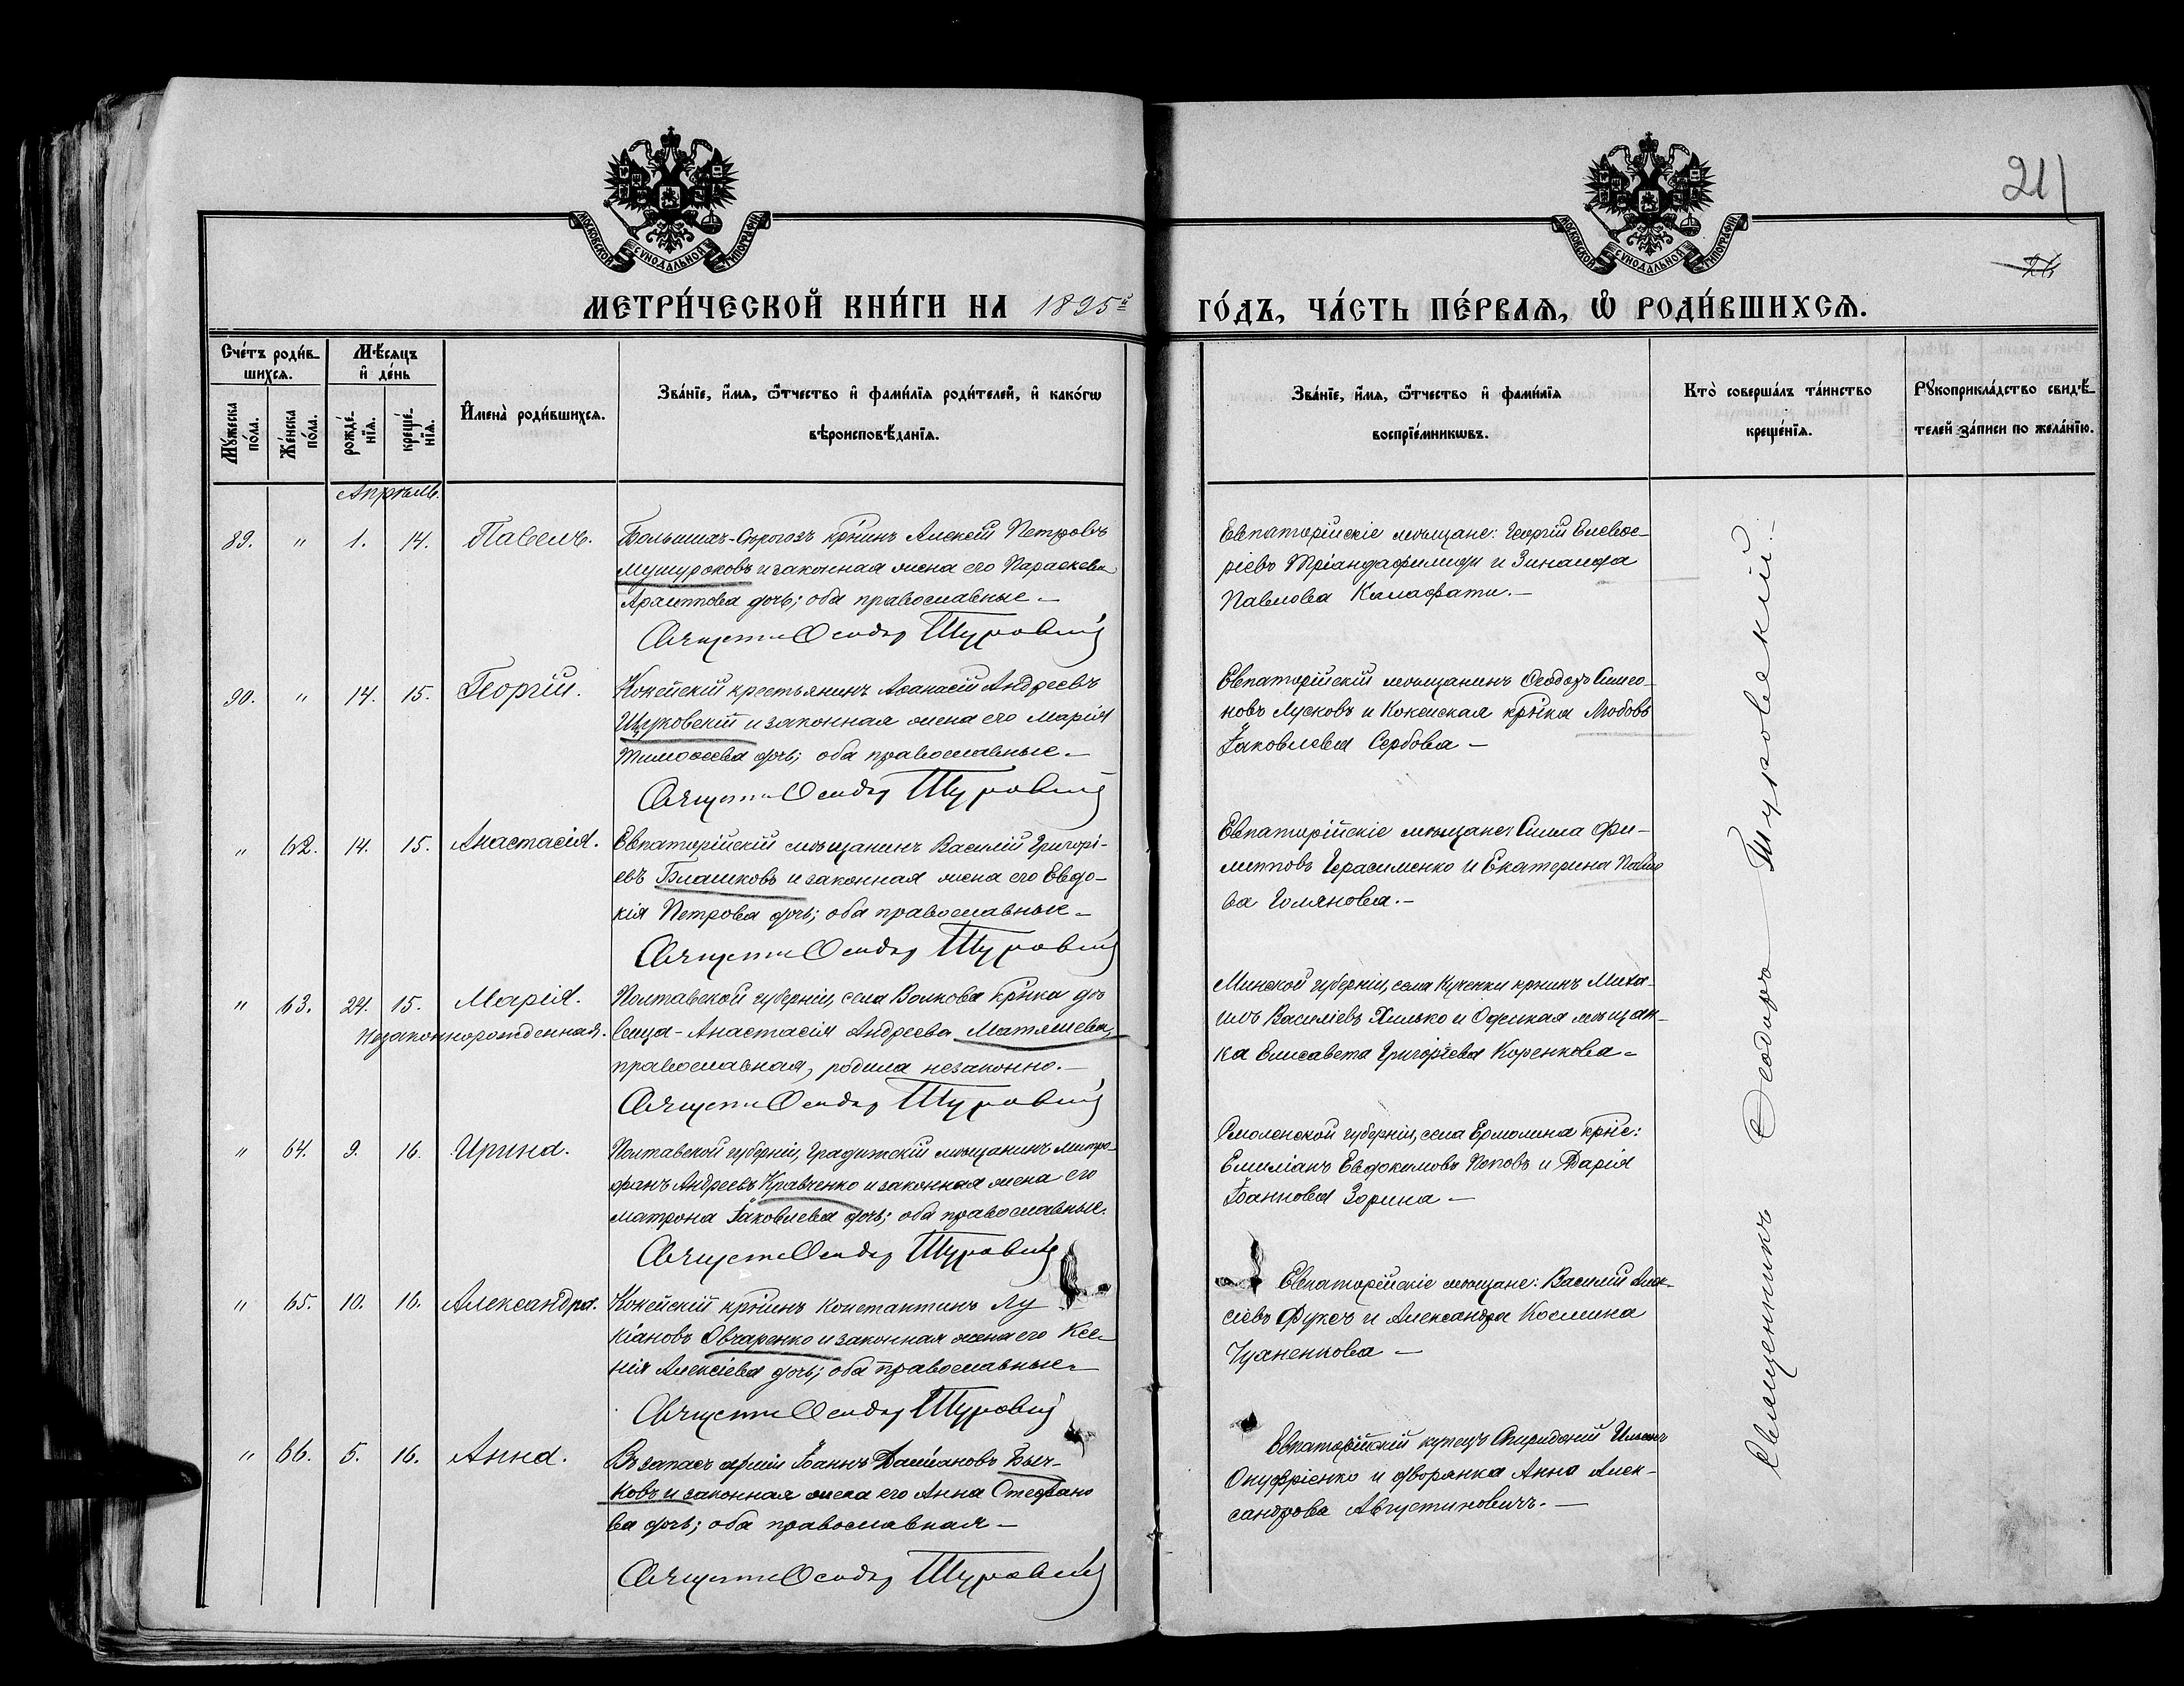 211
26
МОСКОВСКОЙ СѴНОДАЛЬНОЙ ТИПОГРАФІИ
МОСКОВСКОЙ СѴНОДАЛЬНОЙ ТИПОГРАФІИ
МЕТРИ́ЧЕСКОЙ КНИ́ГИ НА 1895й ГО́ДЪ, ЧА́СТЬ ПЕ́РВАѦ, Ѡ҆ РОДИ́ВШИХСѦ.
Сче́тъ роди́в-
шихсѧ.
Мꙋ́жеска
по́ла.
Же́нска
по́ла.
Мѣ́сѧцъ
и҆ де́нь
рожде́-
нїѧ.
креще́-
нїѧ.
И҆мена̀ роди́вшихсѧ.
Зва́нїе, и҆́мѧ, ѻ҆́тчество и҆ фами́лїѧ роди́телей, и҆ како́гѡ
вѣроисповѣ́данїѧ.
Зва́нїе, и҆́мѧ, ѻ҆́тчество и҆ фами́лїѧ
воспрїе́мникѡвъ.
Кто̀ соверша́лъ та́инство
креще́нїѧ.
Рꙋкоприкла́дство свидѣ́-
телей за́писи по жела́нїю.
Апрѣль.
89. " 1. 14. Павелъ.
Большихъ-Сѣрогозъ кр҃нинъ Алексѣй Петровъ
Мушуроковъ и законная жена его Параскева
Архиппова дочь; оба православные.—
Священникъ Ѳеодоръ Туровскій
Евпаторійскіе мѣщане: Георгій Елевфе-
ріевъ Тріандафилиди и Зинаида
Павлова Калафати.—
90. " 14. 15. Георгій.
Кокейскій крестьянинъ Аѳанасій Андреевъ
Щуковскій и законная жена его Марія
Тимоѳеева дочь; оба православные.—
Священникъ Ѳеодоръ Туровскій
Евпаторійскій мѣщанинъ Ѳеодоръ Симео-
новъ Лусковъ и Кокейская кр҃нка Любовь
Іаковлева Сербова —
" 62. 14. 15. Анастасія.
Евпаторійскій мѣщанинъ Василій Григорі-
евъ Блашковъ и законная жена его Евдо-
кія Петрова дочь; оба православные —
Священникъ Ѳеодоръ Туровскій
Евпаторійскіе мѣщане: Сила Фи-
липповъ Герасименко и Екатерина Павло
ва Голянова.—
" 63. 24. 15. Марія.
Незаконнорожденная.
Полтавской губерніи, села Волкова кр҃нка дѣ
вица - Анастасія Андреева Матяшева,
православная, родила незаконно.—
Священникъ Ѳеодоръ Туровскій
Минской губерніи, села Кученки кр҃нинъ Миха-
илъ Василіевъ Хилько и Одесская мѣщан-
ка Елисавета Григоріева Коренкова —
" 64. 9. 16. Ирина.
Полтавской губерніи, Градижскій мѣщанинъ Митро-
фанъ Андреевъ Кравченко и законная жена его
Матрона Іаковлева дочь; оба православные.
Священникъ Ѳеодоръ Туровскій
Смоленской губерніи, села Ермолина кр҃не:
Емиліанъ Евдокимовъ Поповъ и Дарія
Іоаннова Зорина —
" 65. 10. 16. Александра.
Кокейскій кр҃нинъ Константинъ Лу
кіановъ Овчаренко и законная жена его Ксе-
нія Алексіева дочь; оба православные —
Священникъ Ѳеодоръ Туровскій
Евпаторійскіе мѣщане: Василій Алек-
сіевъ Фуксъ и Александра Космина
Цаненкова —
" 66. 5. 16. Анна.
Въ запасъ арміи Іоаннъ Даміановъ Быч-
ковъ и законная жена его Анна Стефано
ва дочь; оба православная —
Священникъ Ѳеодоръ Туровскій
Евпаторійскій купецъ Спиридоній Ильинъ
Онуфріенко и дворянка Анна Алек-
сандрова Августиновичъ. —
Священникъ Ѳеодоръ Туровскій.